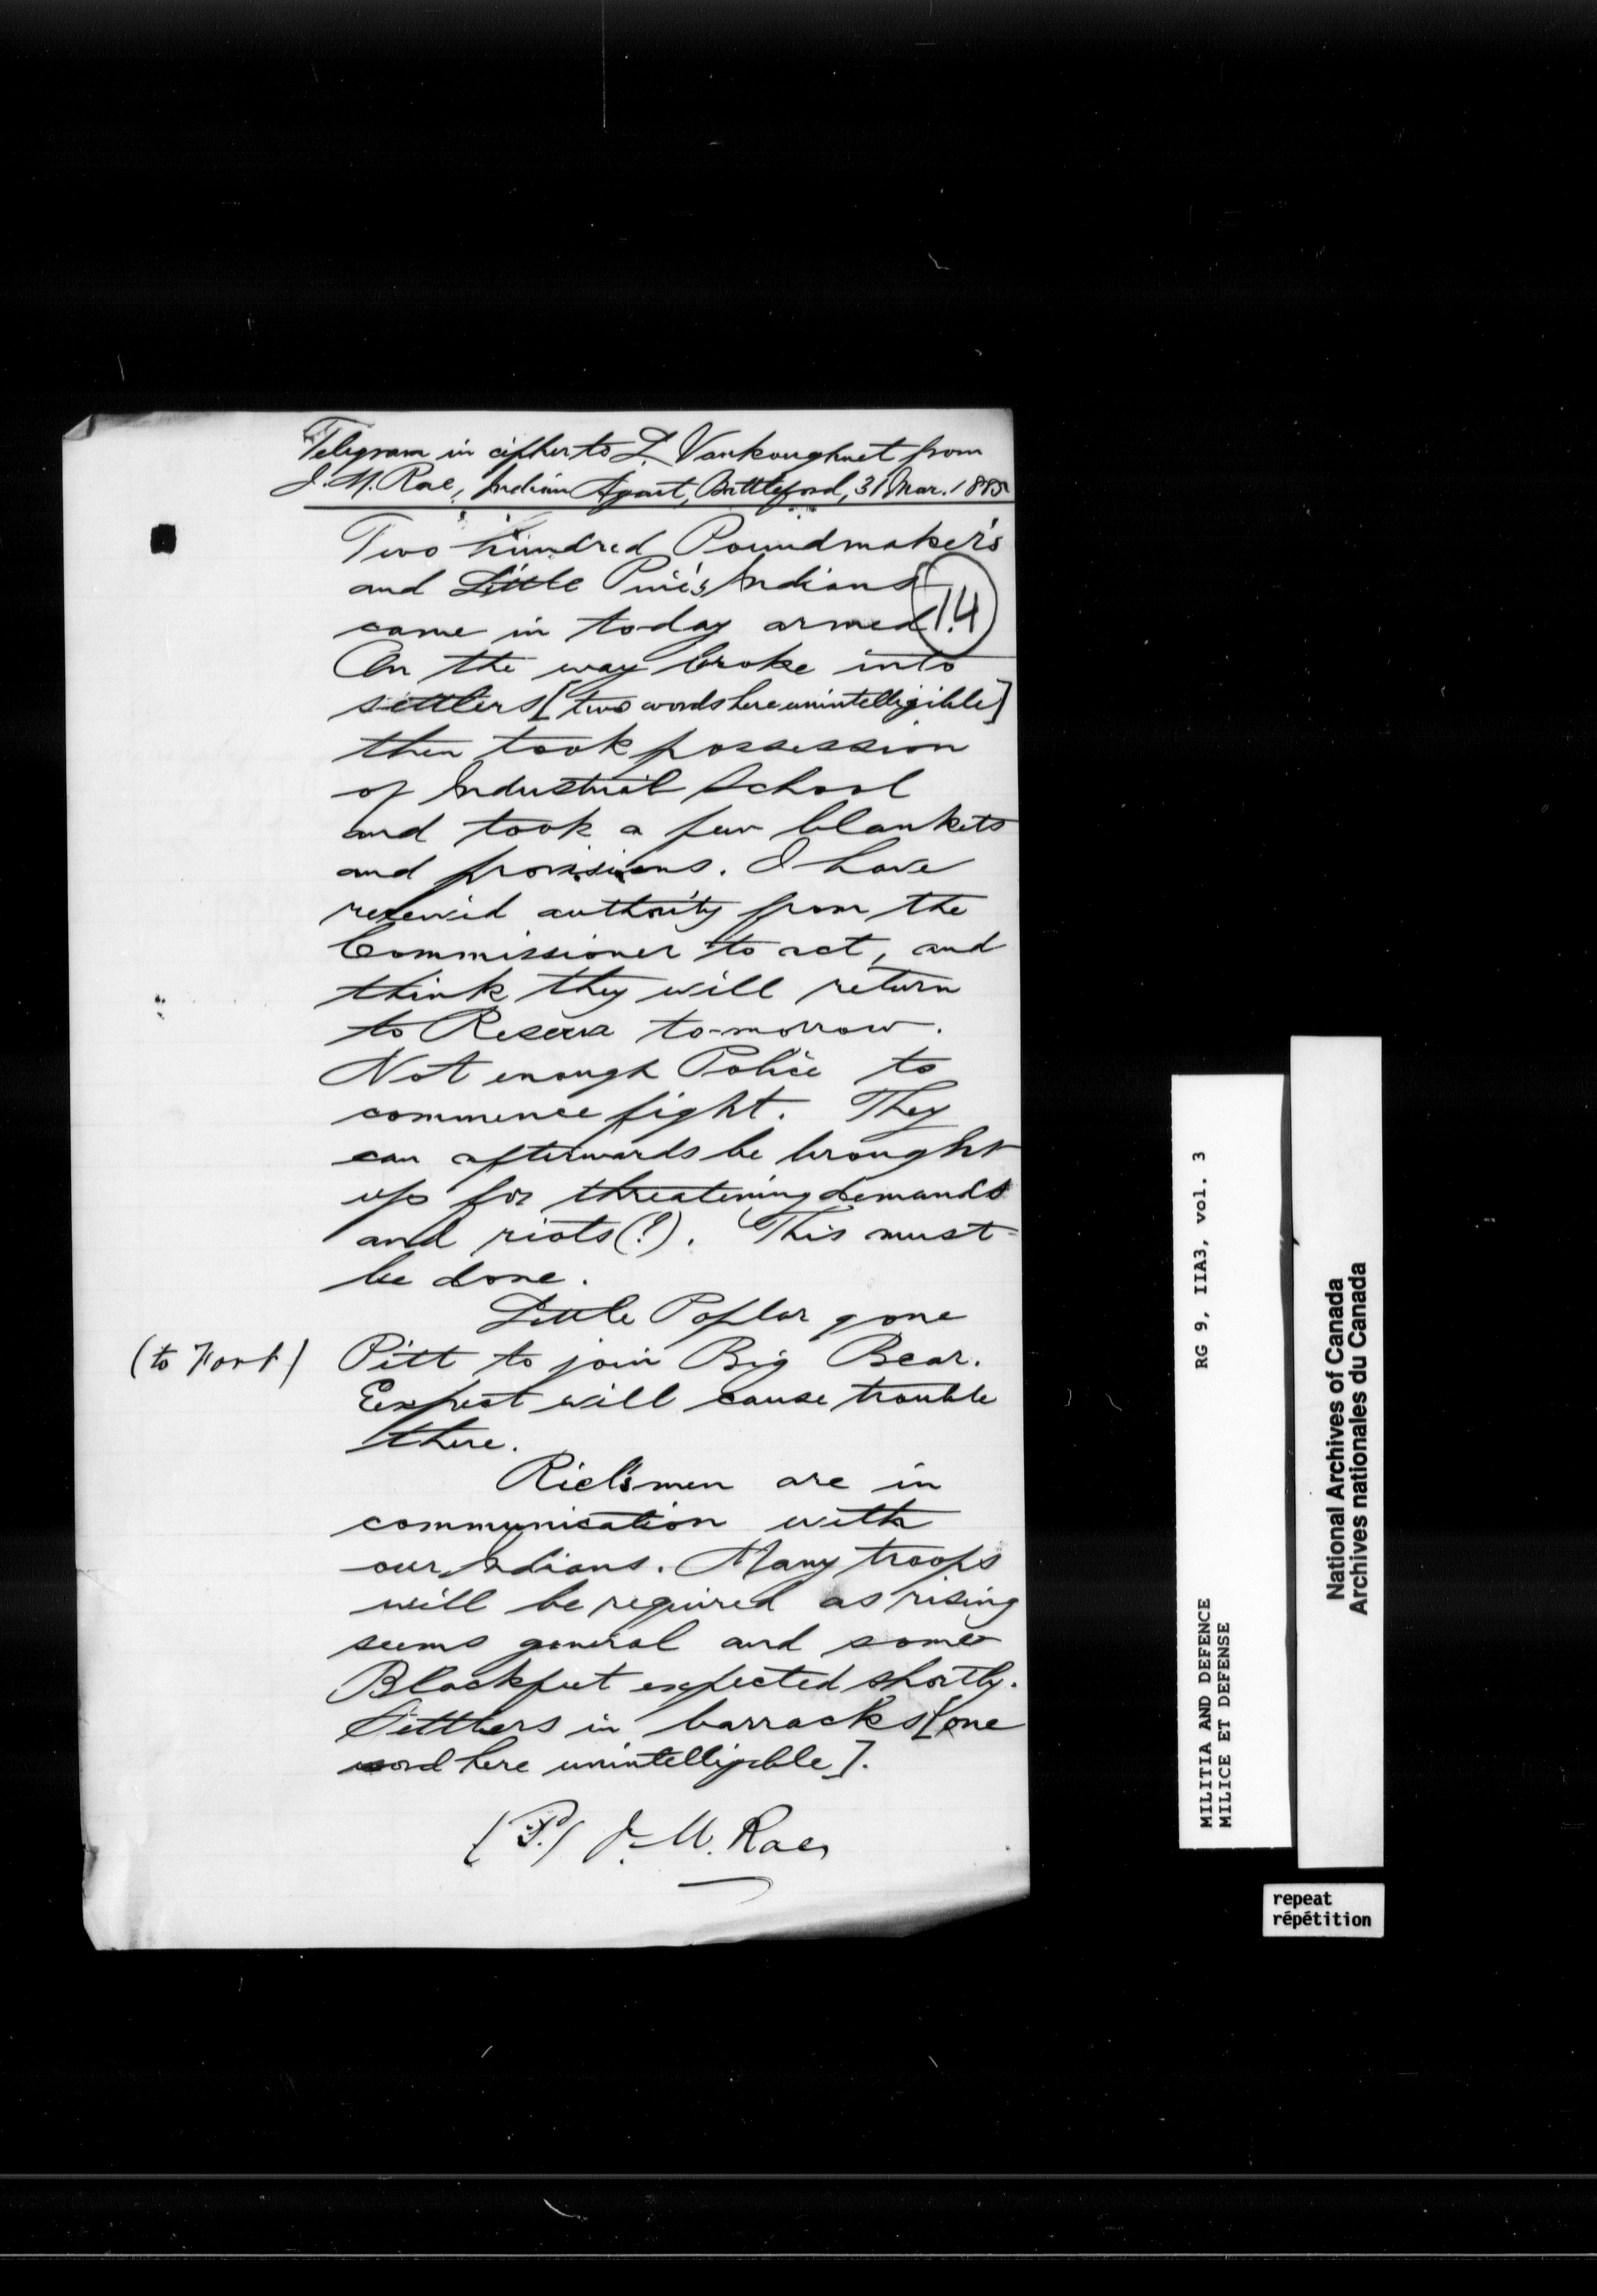 Telegram in cipher to L. Vankoughnet from
J. M. Rae, Indian Agent, Battleford, 31 Mar. 1885
Two hundred Poundmaker's
and Little Pine's Indians
14
came in to-day armed.
On the way broke into
settlers [two words here unintelligible]
then took possession
of Industrial School
and took a few blankets
and provisions. I have
received authority from the
Commissioner to act, and
think they will return
to Reserve to-morrow.
Not enough Police to
commence fight. They
can afterwards be brought
up for threatening demands
and riots(?). This must
be done.
Little Poplar gone
(to Fort) Pitt to join Big Bear.
Expect will cause trouble
there.
Riel's men are in
communication with
our Indians. Many troops
will be required as rising
seems general and some
Blackfeet expected shortly.
Settlers in barracks [one
word here unintelligible].
J. M. Rae
RG 9, IIA3, vol. 3
MILITIA AND DEFENCE
MILICE ET DEFENSE
National Archives of Canada
Archives nationales du Canada
repeat
répétition